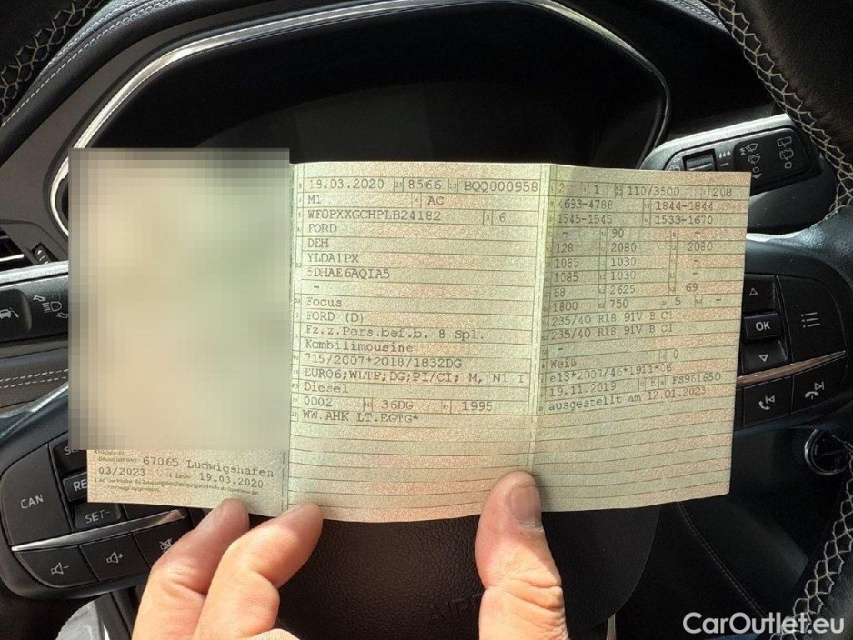 19.03.2020 8566 BQQ000958
M1 AC
WF0PXXGCHPLB24182 6
FORD
DEH
YLDA1PX
5DHAE6AQIA5
-
Focus
FORD (D)
Fz.z.Pers.bef.b. 8 Spl.
Kombilimousine
715/2007*2018/1832DG
EURO6;WLTP;DG;PI/CI; M, N1 I
Diesel
0002 36DG 1995
WW.AHK LT.EGTG*
67065 Ludwigshafen
03/2023 19.03.2020
2 1 110/3500 208
4693-4788 1844-1844
1545-1545 1533-1670
- 90 -
128 2080 2080
1085 1030 -
1085 1030 -
68 2625 69
1800 750 5 -
235/40 R18 91V B C1
235/40 R18 91V B C1
-
Weiß 0
e13*2007/46*1911*06
19.11.2019 K FS961650
ausgestellt am 12.01.2023
CAN
RE
SET-
OK
CarOutlet.eu